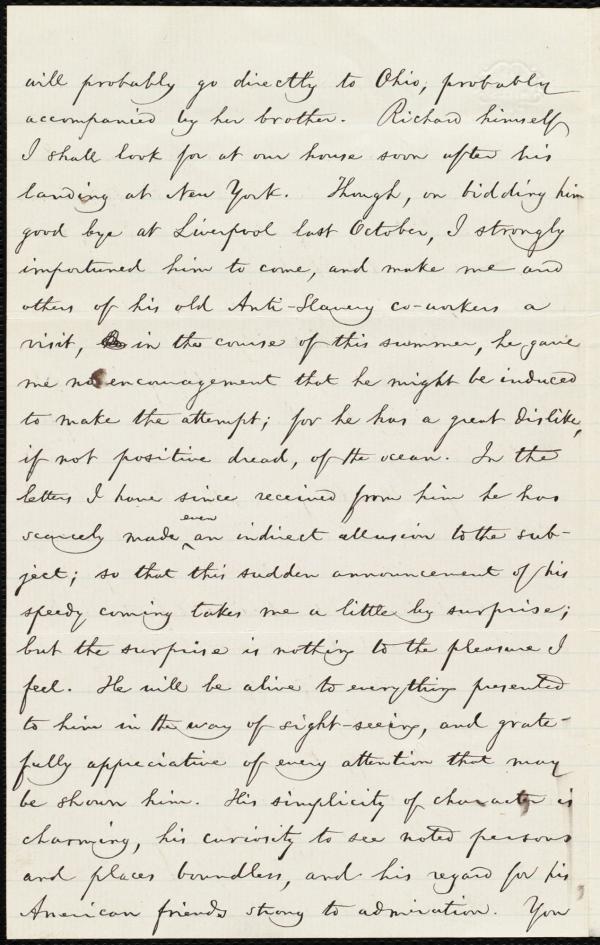 will probably go directly to Ohio, probably
accompanied by her brother. Richard himself
I shall look for at our house soon after his
landing at New York. Though, on bidding him
good bye at Liverpool last October, I strongly
importuned him to come, and make me and
others of his old Anti-Slavery co-workers a
visit, in the course of this summer, he gave
me no encouragement that he might be induced
to make the attempt; for he has a great dislike,
if not positive dread, of the ocean. In the
letters I have since received from him he has
scarcely made even an indirect allusion to the sub-
ject; so that this sudden announcement of his
speedy coming takes me a little by surprise;
but the surprise is nothing to the pleasure I
feel. He will be alive to everything presented
to him in the way of sight-seeing, and grate-
fully appreciative of every attention that may
be shown him. His simplicity of character is
charming, his curiosity to see noted persons
and places boundless, and his regard for his
American friends strong to admiration. You